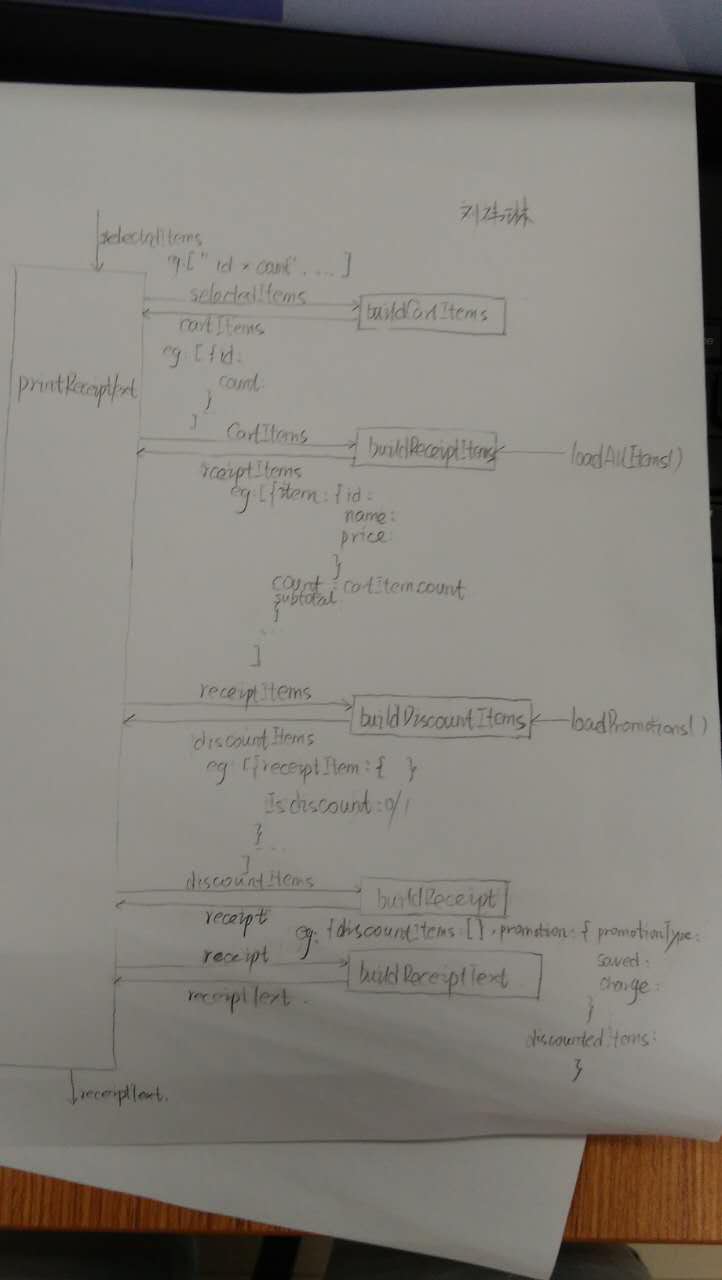 selectedItems
eg:["id × count", ...]
selectedItems
buildCartItems
cartItems
eg: [{id:
count
}
]
printReceiptText
CartItems
buildReceiptItems
loadAllItems()
receiptItems
eg:[{item: {id:
name:
price
}
count : cartItem.count
subtotal
}
...
]
receiptItems
buildDiscountItems
loadPromotions()
discountItems
eg [{receiptItem: { }
Isdiscount: 0/1
}
...
]
discountItems
buildReceipt
receipt
eg: {discountItems: [], promotion: { promotionType:
saved:
charge:
}
discountedItems:
}
receipt
buildReceiptText
receiptText.
receiptText.